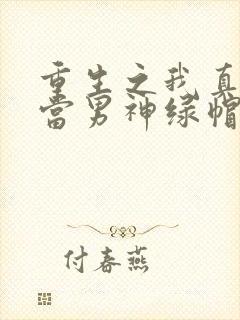 重生之我真
当男神绿帽
付春燕